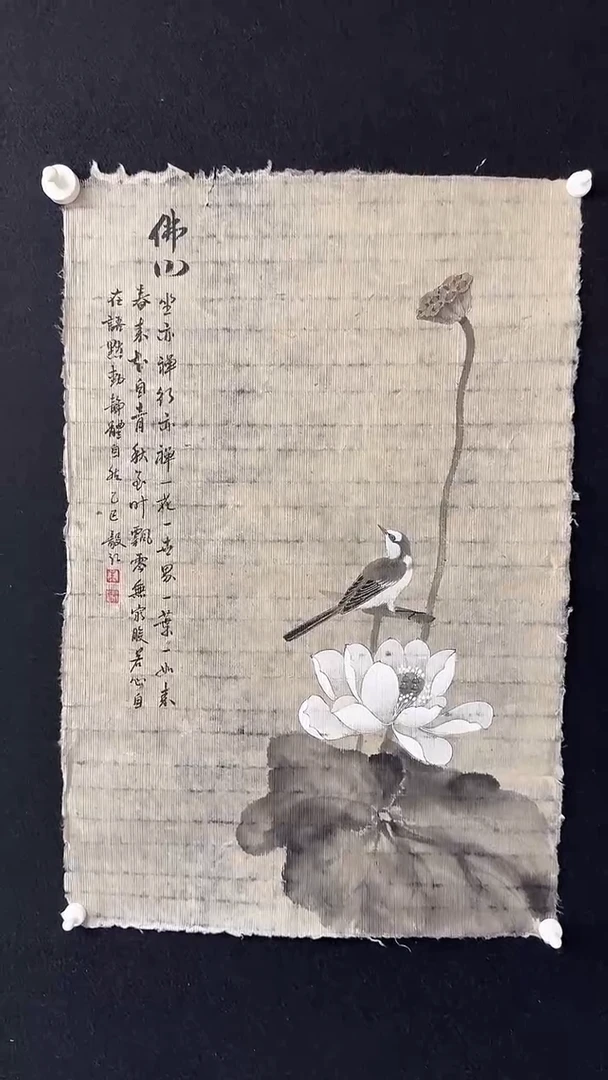 佛心
坐亦禅行亦禅一花一世界一葉一如来
春来花自青秋至叶飄零無窮般若心自
在語默動靜體自然乙巳毅